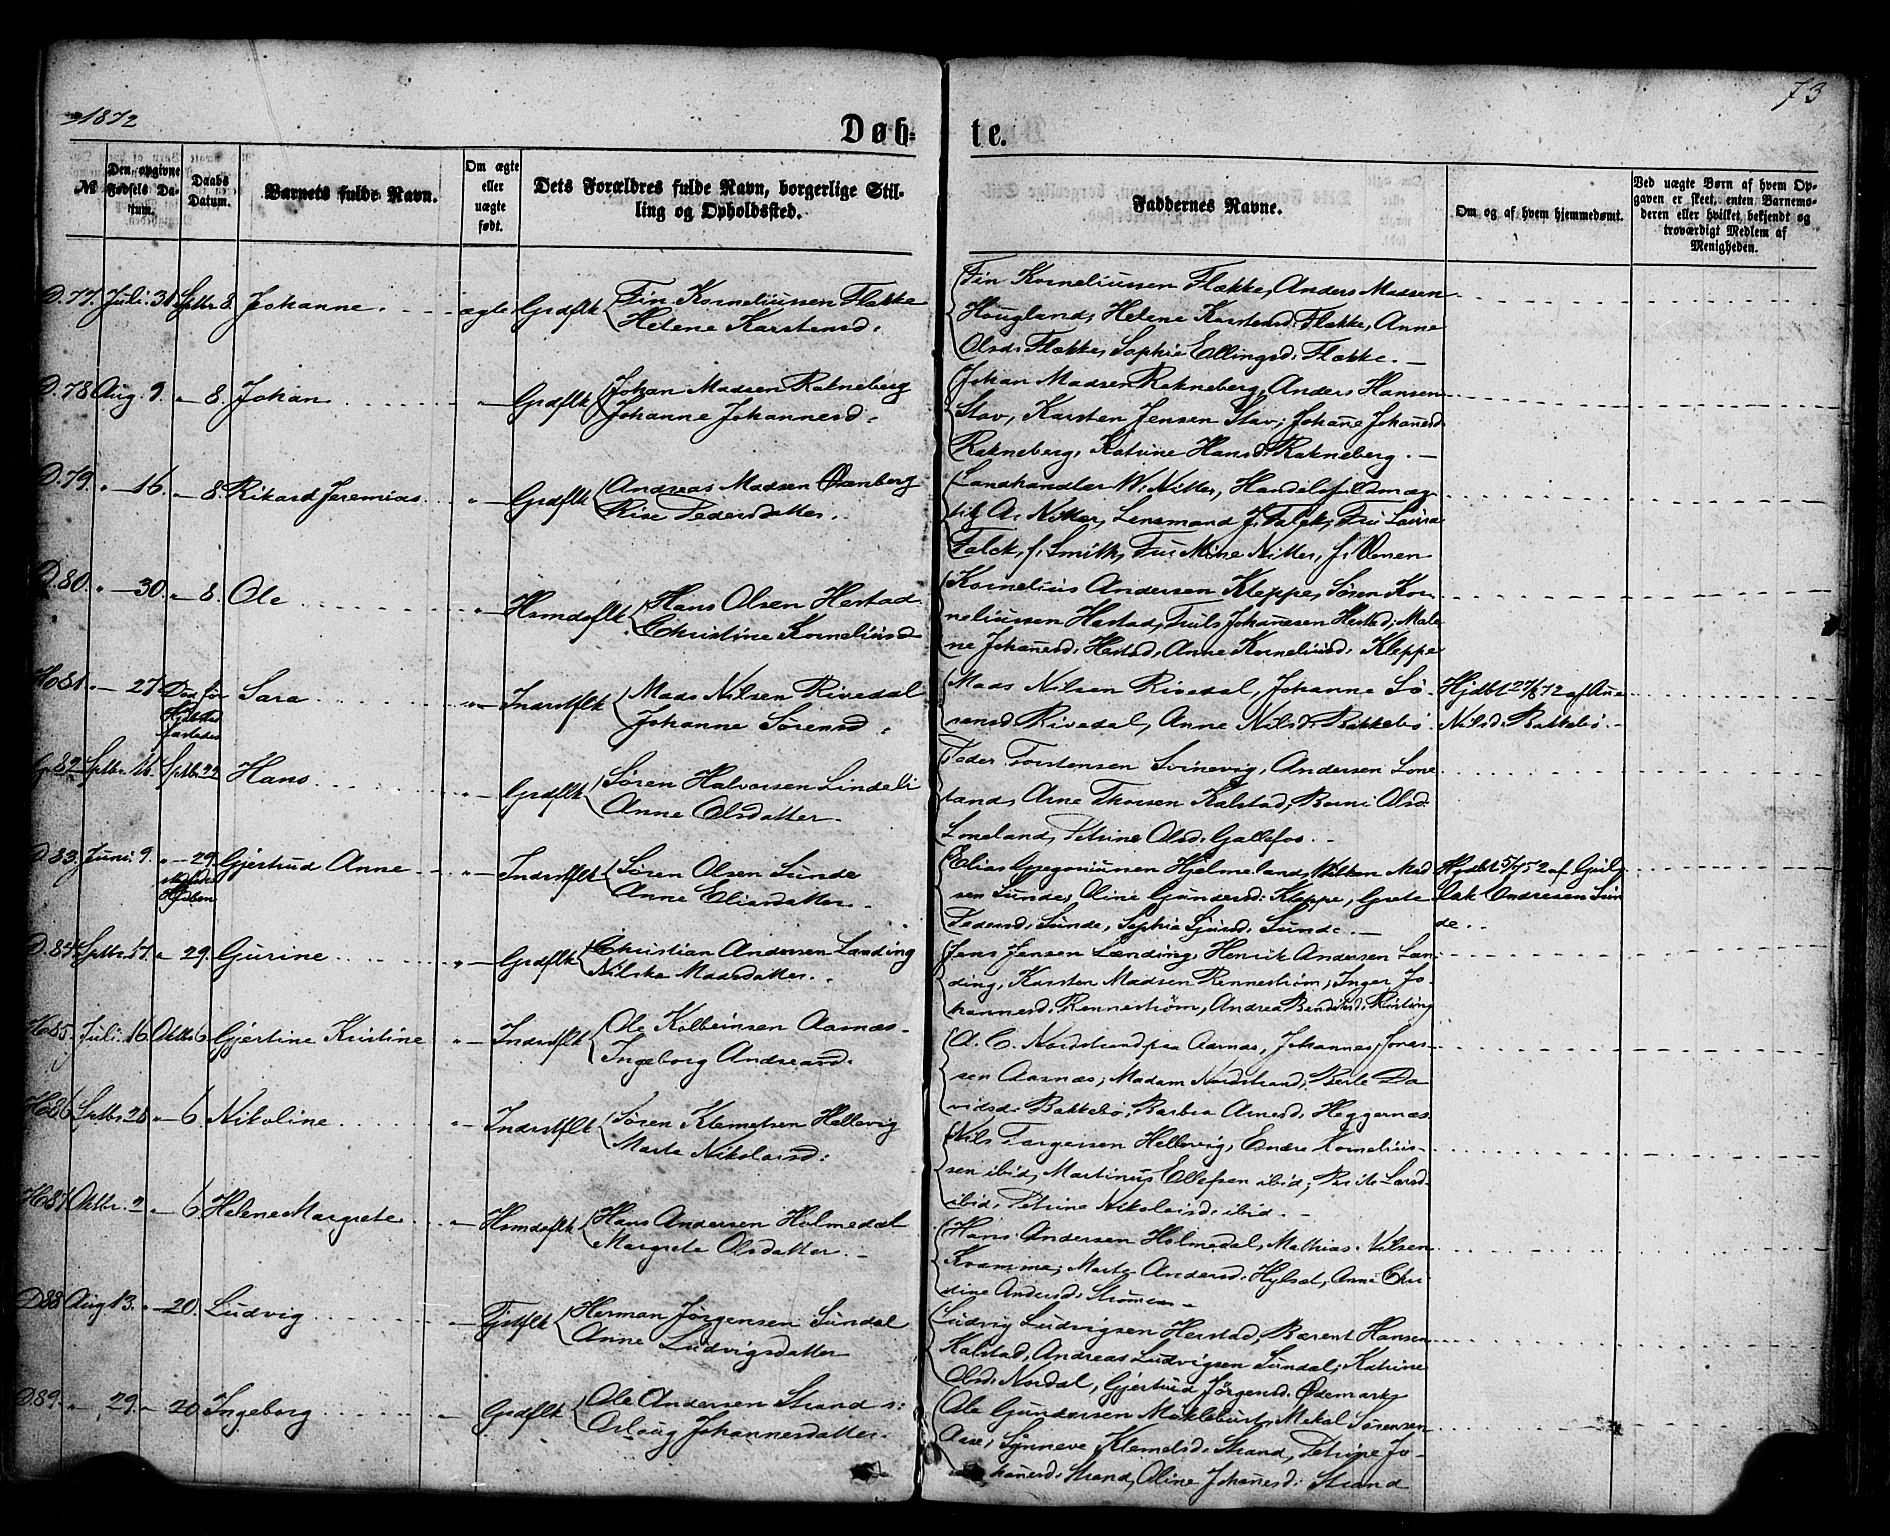 1872
73
Døb-
te.
№
Den opgivne Fødsels Datum.
Daabs Datum.
Barnets fulde Navn.
Om ægte eller uægte født.
Dets Forældres fulde Navn, borgerlige Stilling og Opholdssted.
Faddernes Navne.
Om og af hvem hjemmedøbt.
Ved uægte Børn af hvem Opgaven er skeet, enten Barnemoderen eller hvilket bekjendt og troværdigt Medlem af Menigheden.
D. 77. Juli. 31. Sptbr. 8. Johanne. ægte Grdflk Fin Korneliussen Flekke
Helene Karstensd.
Fin Korneliussen Flekke, Anders Madsen
Hougland, Helene Karstensd. Flekke, Anne
Olsd. Flekke, Sophie Ellingsd. Flekke. —
D. 78 Aug. 9. „ 8. Johan „ Grdflk Johan Madsen Rakneberg
Johanne Johannesd.
Johan Madsen Rakneberg, Anders Hansen
Stav, Karsten Jensen Stav, Johane Johanesd.
Rakneberg, Katrine Hansd. Rakneberg. —
D. 79. „ 16. „ 8. Rikard Jeremias „ Grdflk Andreas Madsen
Peders datter.
Landhandler W. Nitter, Handelsfuldmæg-
tig A. Nitter, Lensmand J. Falck, Fru Lovisa
Falck, f. Smith, Fru Mine Nitter, f.
D. 80. „ 30. „ 8. Ole „ Hsmdsflk Hans Olsen Hestad
Christine Korneliusd
Kornelius Andersen Kleppe, Søren Kor-
neliussen Hestad, Truls Johanesen Hestad, Male
ne Johanesd. Hestad, Anne Korneliusd. Kleppe
Ho 81. „ 27 Sara „ Indrstflk Mads Nilsen Rivedal
Johanne Sørensd.
Mads Nilsen Rivedal, Johanne Sø
rensd Rivedal, Anne Nilsd. Bakkebø
Hjdbt 27/8 72 af Ane
Nilsd. Bakkebø. —
82 Sptbr. 16. Sptbr 22 Hans „ Grdflk Søren Halvorsen Lindeli
Anne Olsdatter.
Peder Torstensen Svinevig, Andersen Lone
land, Arne Thorsen Kalstad, Olsd.
Loneland, Petrine Olsd. Gallefos. —
D. 83. Juni. 9. „ 29. Gjertrud Anne „ Indrstflk Søren Olsen Sunde
Anne Eliasdatter.
Elias Gregoriussen Hjelmeland, Mad
sen Sunde, Oline Gundersd. Kleppe, Grete
Pedersd. Sunde, Sophie Sjursd. Sunde. —
Hjdbt 5/7 52 af Gul
lak Andresen Sun
de.
D. 84 Sptbr. 17. „ 29. Gurine „ Grdflk Christian Andersen Lænding
Nilske Madsdatter.
Jens Jensen Lænding, Henrik Andersen Læn
ding, Karsten Madsen Rennestrøm, Inger Jo-
hannesd. Rennestrøm, Andrea
Ho 85. Juli. 16. Oktbr 6. Gjertine Kristine „ Indrstflk Ole Kolbeinsen Aarnæs
Ingeborg Andreasd.
A. C. Nordstrand paa Aarnæs, Johannes Jonas-
sen Aarnæs, Madam Nordstrand, Berte Da
vidsd. Bakkebø, Barbra Arnesd. Heggernæs
86 Sptbr. 26 „ 6. Nikoline „ Indrstflk Søren Klemetsen Hellevig
Marte Nikolaisd.
Nils Torgersen Hellevig, Endre Kornelius-
sen ibid, Martinus Ellefsen ibid, Larsd.
ibid, Petrine Nikolaisd. ibid. —
Ho 87 Oktbr. 2 „ 6. Helene Margrete „ Hsmdsflk Hans Andersen Holmedal
Margrete Olsdatter. —
Hans Andersen Holmedal, Mathias Nilsen
Kvamme, Marte Andersd. Anne Chri
stine Andersd.
D 88 Aug 13. „ 20. Ludvig „ Grdflk Herman Jørgensen Sundal
Anne Ludvigsdatter
Ludvig Ludvigsen Herstad, Bærent Hansen
Kalstad, Andreas Ludvigsen Sundal, Katrine
Olsd. Nordal, Gjertrud Jørgensd. Ødemark,
D 89. „ 29. „ 20. Ingeborg „ Grdflk Ole Andersen Strand
Johannesdatter.
Ole Gundersen Mikal Sørensen
Aase, Synneve Klemetsd. Strand, Petrine Jo-
hanesd. Strand, Oline Johanesd. Strand